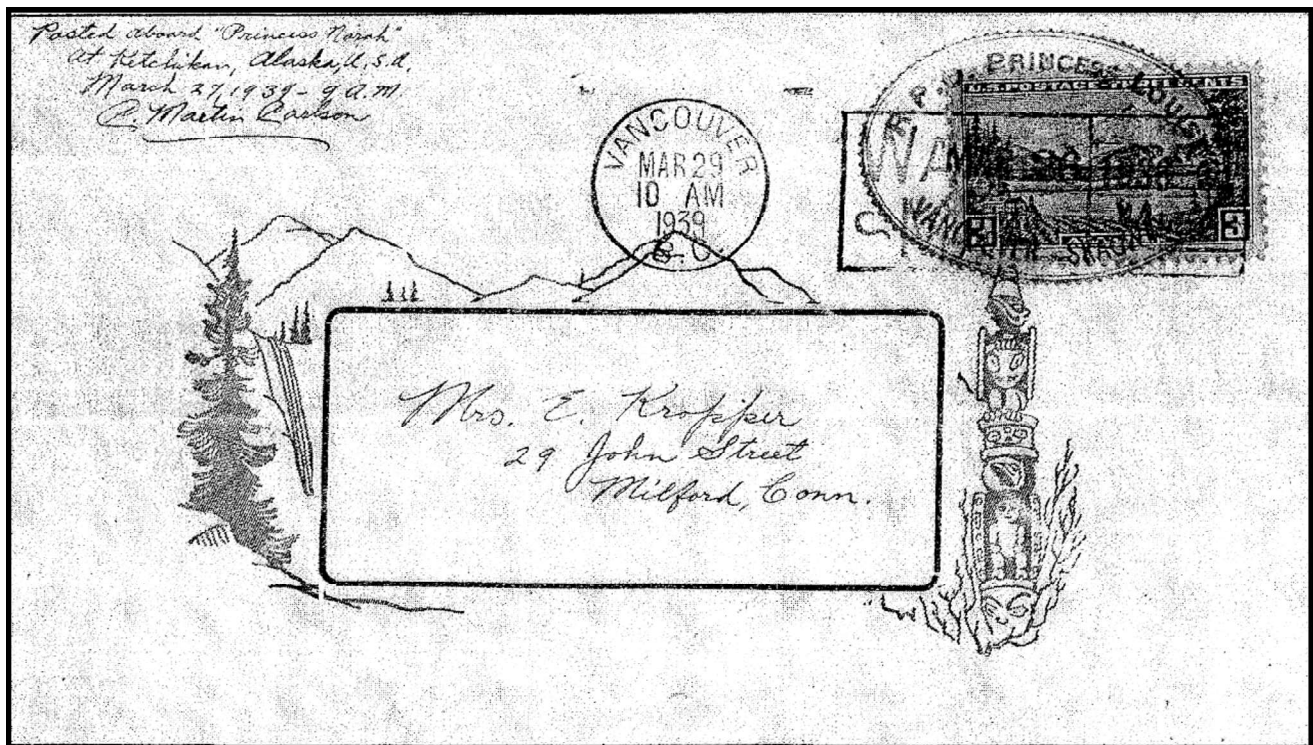 Posted aboard "Princess Norah"
At Ketchikan, Alaska, U.S.A.
March 27, 1939 - 9 A.M.
C. Martin Carlson
VANCOUVER
MAR 29
10 AM
1939
B.C.
PRINCESS LOUISE
U.S. POSTAGE - THREE CENTS
3 3
SKAGWAY
Mrs. E. Kropper
29 John Street
Milford, Conn.